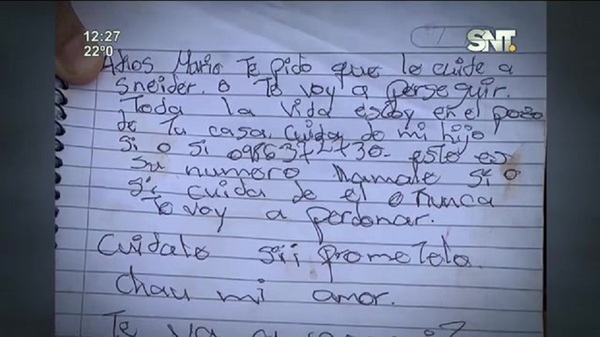 12:27
22°0
SNT.
Adios Mario Te pido que lo cuide a
Sneider. o Te voy a perseguir.
Toda la vida estoy en el pozo
de Tu casa. cuida de mi hijo
si o si este es
su numero llamale si o
si cuida de el o nunca
To voy a perdonar.
Cuidate siii prometelo.
chau mi amor.
Te va a